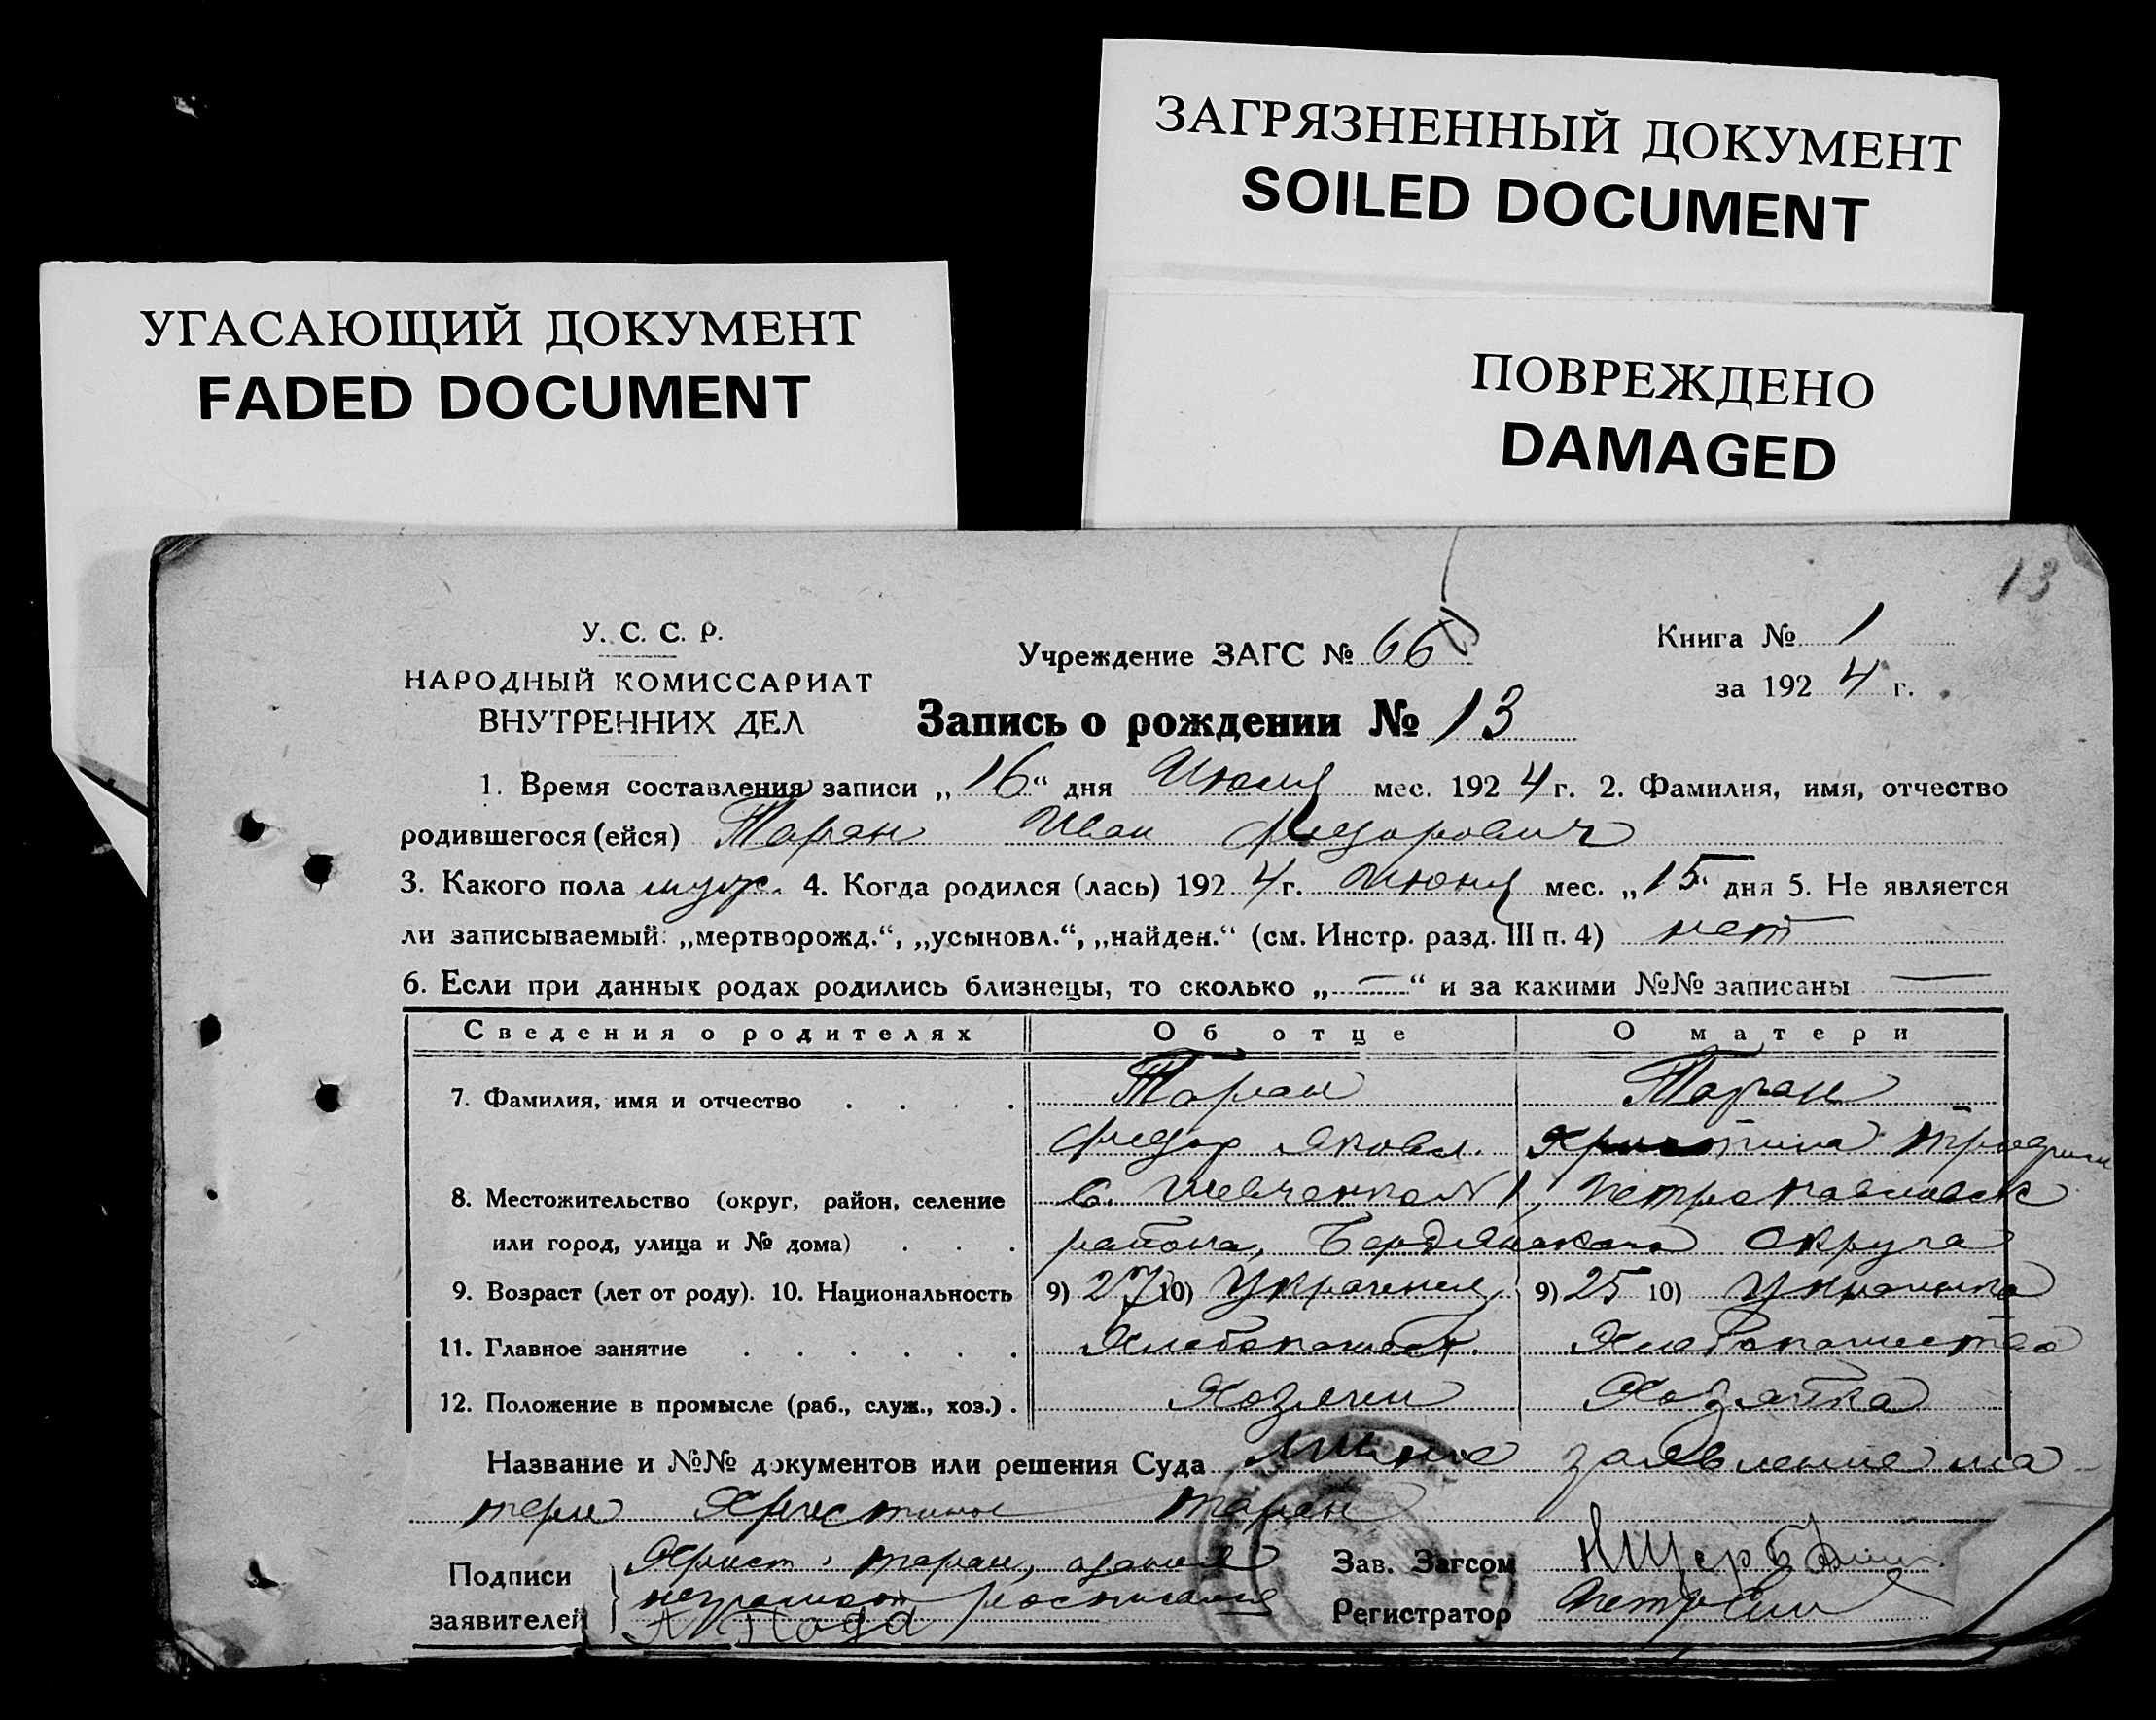 ЗАГРЯЗНЕННЫЙ ДОКУМЕНТ
SOILED DOCUMENT
УГАСАЮЩИЙ ДОКУМЕНТ
FADED DOCUMENT
ПОВРЕЖДЕНО
DAMAGED
13
У. С. С. Р.
НАРОДНЫЙ КОМИССАРИАТ
ВНУТРЕННИХ ДЕЛ
Учреждение ЗАГС № 66
Книга № 1
за 1924 г.
Запись о рождении № 13
1. Время составления записи „16“ дня Июня мес. 1924 г. 2. Фамилия, имя, отчество
родившегося (ейся) Таран Иван Федорович
3. Какого пола муж. 4. Когда родился (лась) 1924 г. Июня мес. „15“ дня 5. Не является
ли записываемый: „мертворожд.“, „усыновл.“, „найден.“ (см. Инстр. разд. III п. 4) нет
6. Если при данных родах родились близнецы, то сколько „—“ и за какими №№ записаны —
Сведения о родителях Об отце О матери
7. Фамилия, имя и отчество . . . . Таран Таран
Федор Яковл. Христина
8. Местожительство (округ, район, селение с. Шевченко №1, Петропавловск
или город, улица и № дома) . . . района, Бердянского округа
9. Возраст (лет от роду). 10. Национальность 9) 27 10) Украинец 9) 25 10) Украинка
11. Главное занятие . . . . . . Хлебопашест. Хлебопашество
12. Положение в промысле (раб., служ., хоз.) . Хозяин Хозяйка
Название и №№ документов или решения Суда Личное заявление ма
тери Христины Таран
Подписи
заявителей
Христ. Таран, а за нея
неграмот росписался
Зав. Загсом
Регистратор